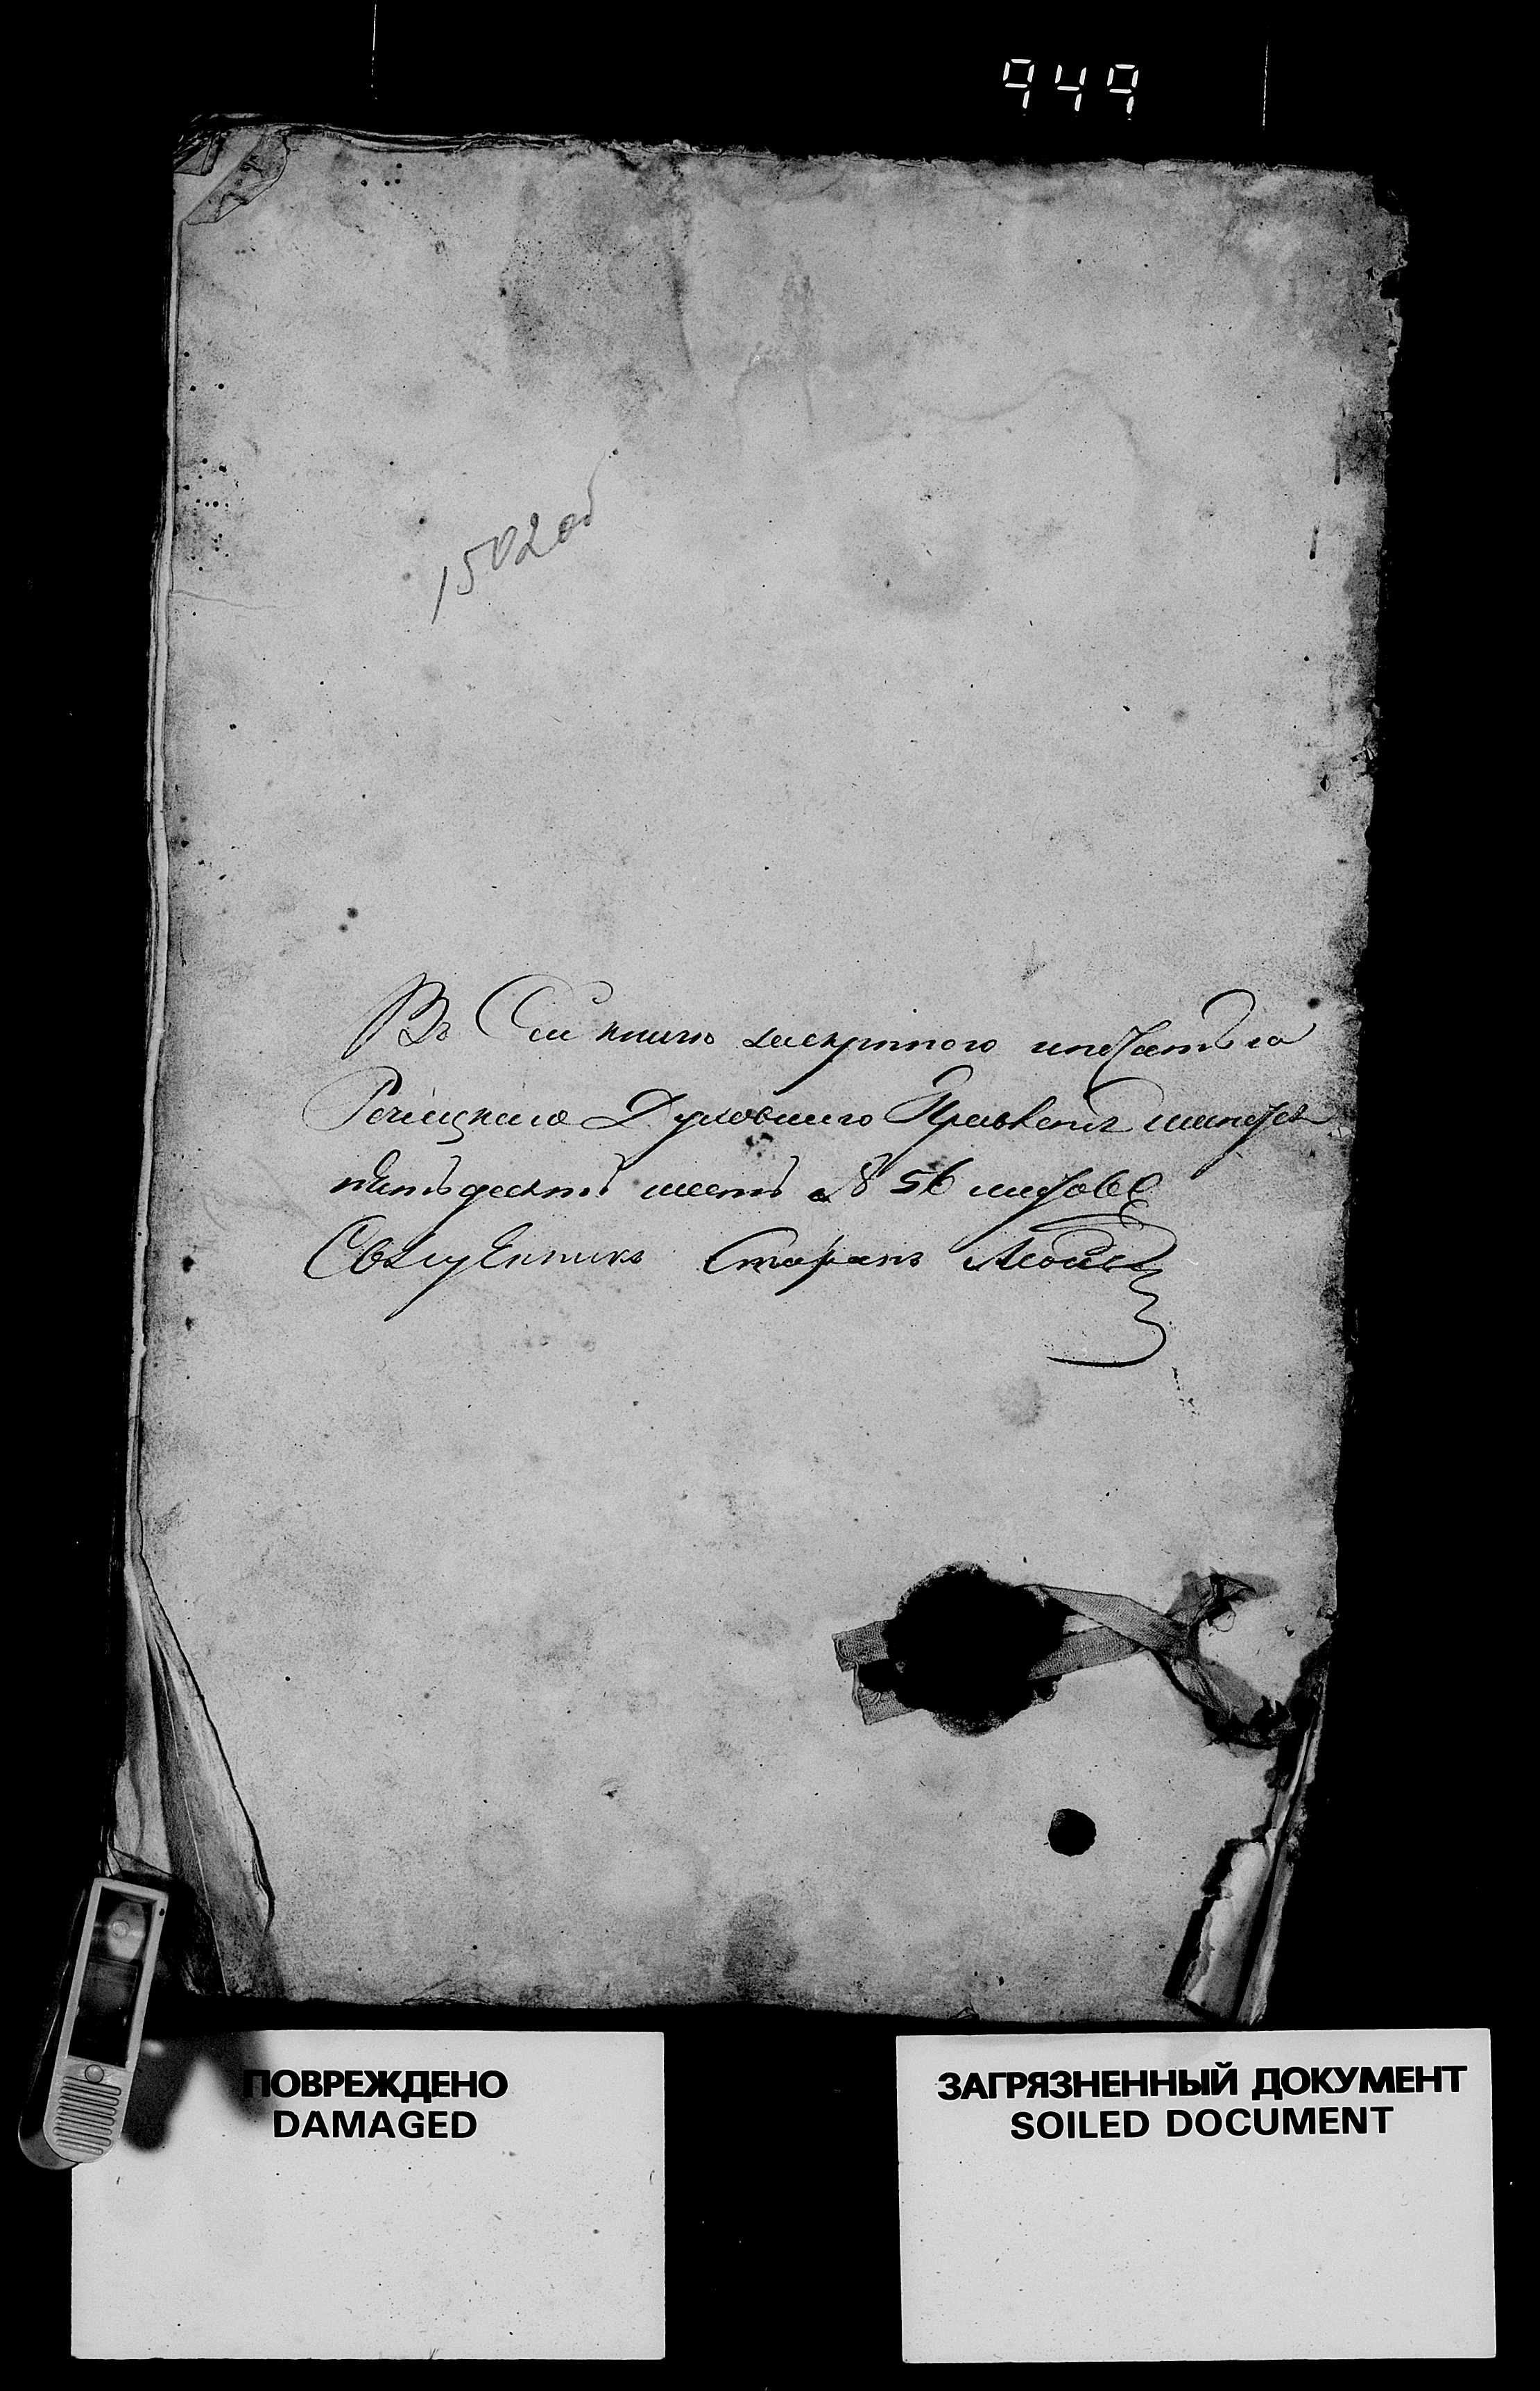 949
1502 об
Въ Сей книги заскрѣпою и печатью
Речицкаго Духовнаго Правленія шнуръ
пятьдесятъ шесть № 56 листовъ
Священникъ Стефанъ
ПОВРЕЖДЕНО
DAMAGED
ЗАГРЯЗНЕННЫЙ ДОКУМЕНТ
SOILED DOCUMENT